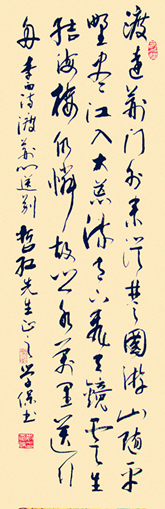 渡远荆门外来从楚国游山随平
野尽江入大荒流月下飞天镜云生
结海楼仍怜故乡水万里送行
舟 李白诗渡荆门送别 先生正之 学保书